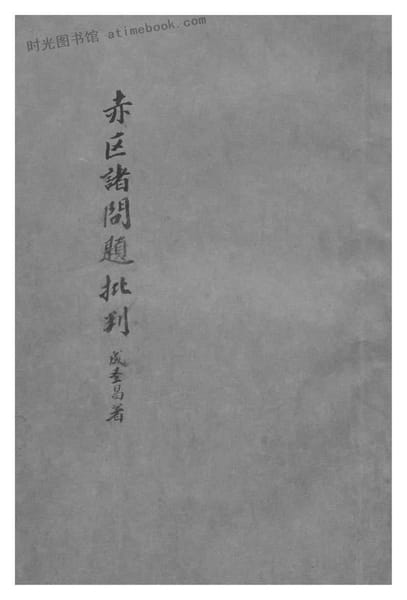 时光图书馆 atimebook.com
赤区諸問題批判
成圣昌著